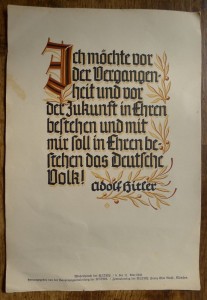 Ich möchte vor
der Vergangen-
heit und vor
der Zukunft in Ehren
bestehen und mit
mir soll in Ehren be-
stehen das deutsche
Volk!
Adolf Hitler